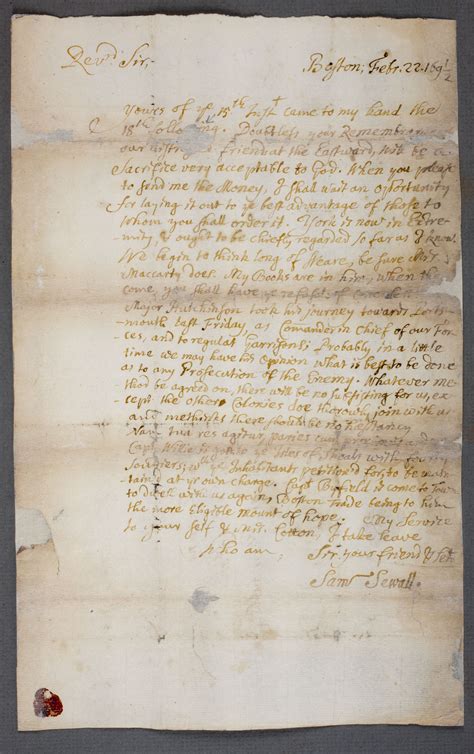 Revd Sir,
Boston, Febr. 22. 169 1/2
Yours of ye 15th Inst came to my hand the
18th following. Doubtless your Remembrance
our friend at the Eastward, will be a
Sacrifice very acceptable to God. When you please
to send me the Money, I shall wait an opportunity
for laying it out to ye best advantage of those to
whom you shall order it. York is now in Extre-
-mity, & ought to be chiefly regarded so far as I know.
We begin to think long of Weare, be sure Mr.
Maccarty does. My Books are in him, when the
come, you shall have ye refusal of
Major Hutchinson took his journey toward Ports-
-mouth last Friday, as Comander in Chief of our For-
-ces, and to regulat Garrisons: Probably in a little
time we may have his Opinion what is best to be done
as to any Prosecution of the Enemy. Whatever me-
thod be agreed on, there will be no subsisting for us, ex-
cept the other Colonies doe thorowly join with us
and methinks there should be no Hesitancy
Nam tua res agitur, paries cum proximus
Capt Willie is gon to ye Isles of Shoals with
Souldiers, wch ye Inhabitants petition'd for, to be main-
-tain'd at yr own charge. Capt Byfield is come to Town
to dwell with us again, Boston Trade being to him
the more Eligible mount of hope. My Service
to your self & Mrs. Cotton, I take leave
who am, Sir, your friend &
Sam Sewall.